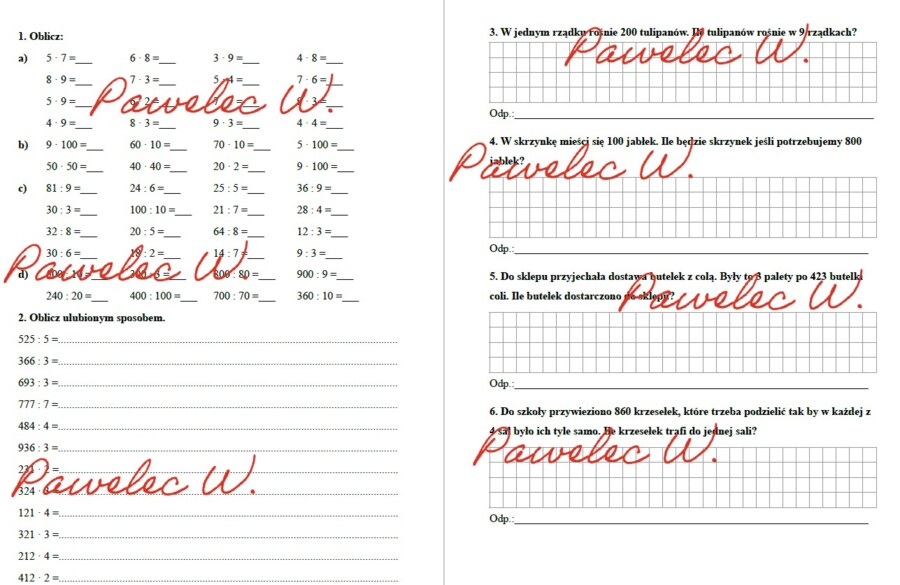 1. Oblicz:
a) 5 · 7 =___ 6 · 8 =___ 3 · 9 =___ 4 · 8 =___
8 · 9 =___ 7 · 3 =___ 5 · 4 =___ 7 · 6 =___
5 · 9 =___ 6 · 2 =___ 3 =___
4 · 9 =___ 8 · 3 =___ 9 · 3 =___ 4 · 4 =___
Pawelec W.
b) 9 · 100 =___ 60 · 10 =___ 70 · 10 =___ 5 · 100 =___
50 · 50 =___ 40 · 40 =___ 20 · 2 =___ 9 · 100 =___
c) 81 : 9 =___ 24 : 6 =___ 25 : 5 =___ 36 : 9 =___
30 : 3 =___ 100 : 10 =___ 21 : 7 =___ 28 : 4 =___
32 : 8 =___ 20 : 5 =___ 64 : 8 =___ 12 : 3 =___
30 : 6 =___ 18 : 2 =___ 14 : 7 =___ 9 : 3 =___
Pawelec W.
d) 800 : 80 =___ 900 : 9 =___
240 : 20 =___ 400 : 100 =___ 700 : 70 =___ 360 : 10 =___
2. Oblicz ulubionym sposobem.
525 : 5 =
366 : 3 =
693 : 3 =
777 : 7 =
484 : 4 =
936 : 3 =
Pawelec W.
121 · 4 =
321 · 3 =
212 · 4 =
412 · 2 =
3. W jednym rządku rośnie 200 tulipanów. Ile tulipanów rośnie w 9 rządkach?
Pawelec W.
Odp.:
4. W skrzynkę mieści się 100 jabłek. Ile będzie skrzynek jeśli potrzebujemy 800
jabłek?
Pawelec W.
Odp.:
5. Do sklepu przyjechała dostawa butelek z colą. Były to 3 palety po 423 butelki
coli. Ile butelek dostarczono do sklepu?
Pawelec W.
Odp.:
6. Do szkoły przywieziono 860 krzesełek, które trzeba podzielić tak by w każdej z
4 sal było ich tyle samo. Ile krzesełek trafi do jednej sali?
Pawelec W.
Odp.: